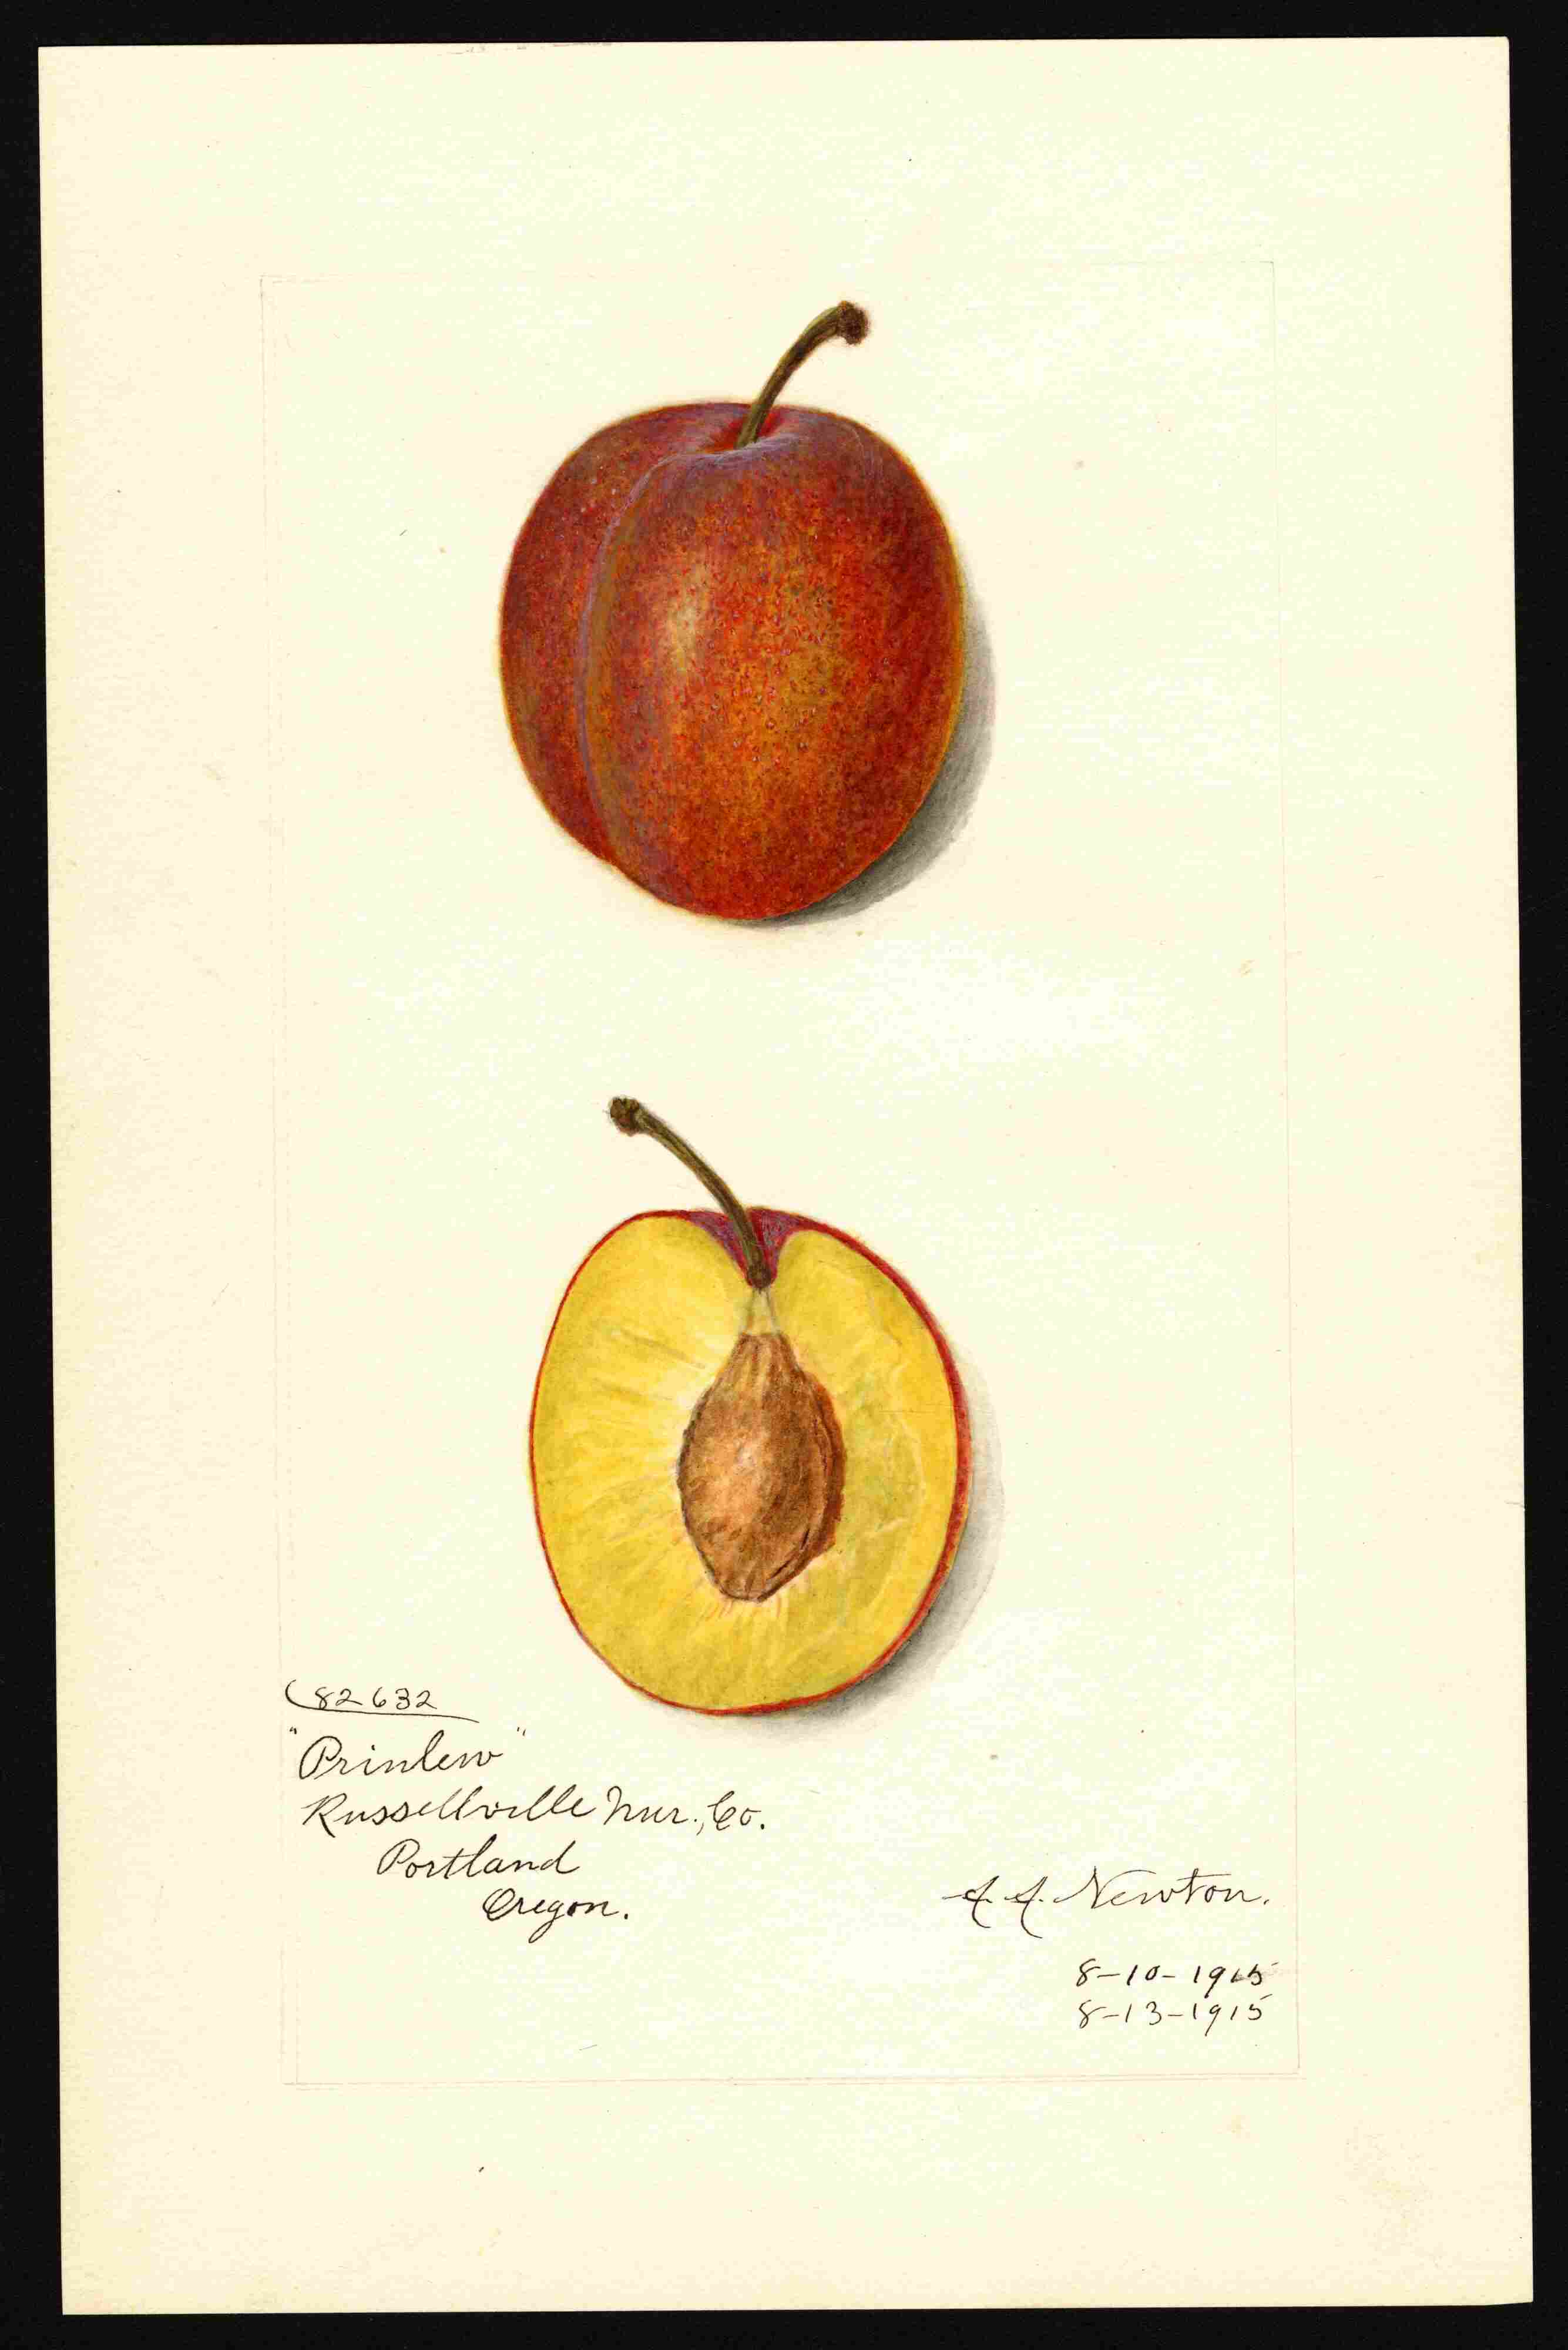 82632
"Prinlew"
Russellville Nur., Co.
Portland
Oregon.
A. A. Newton.
8-10-1915
8-13-1915